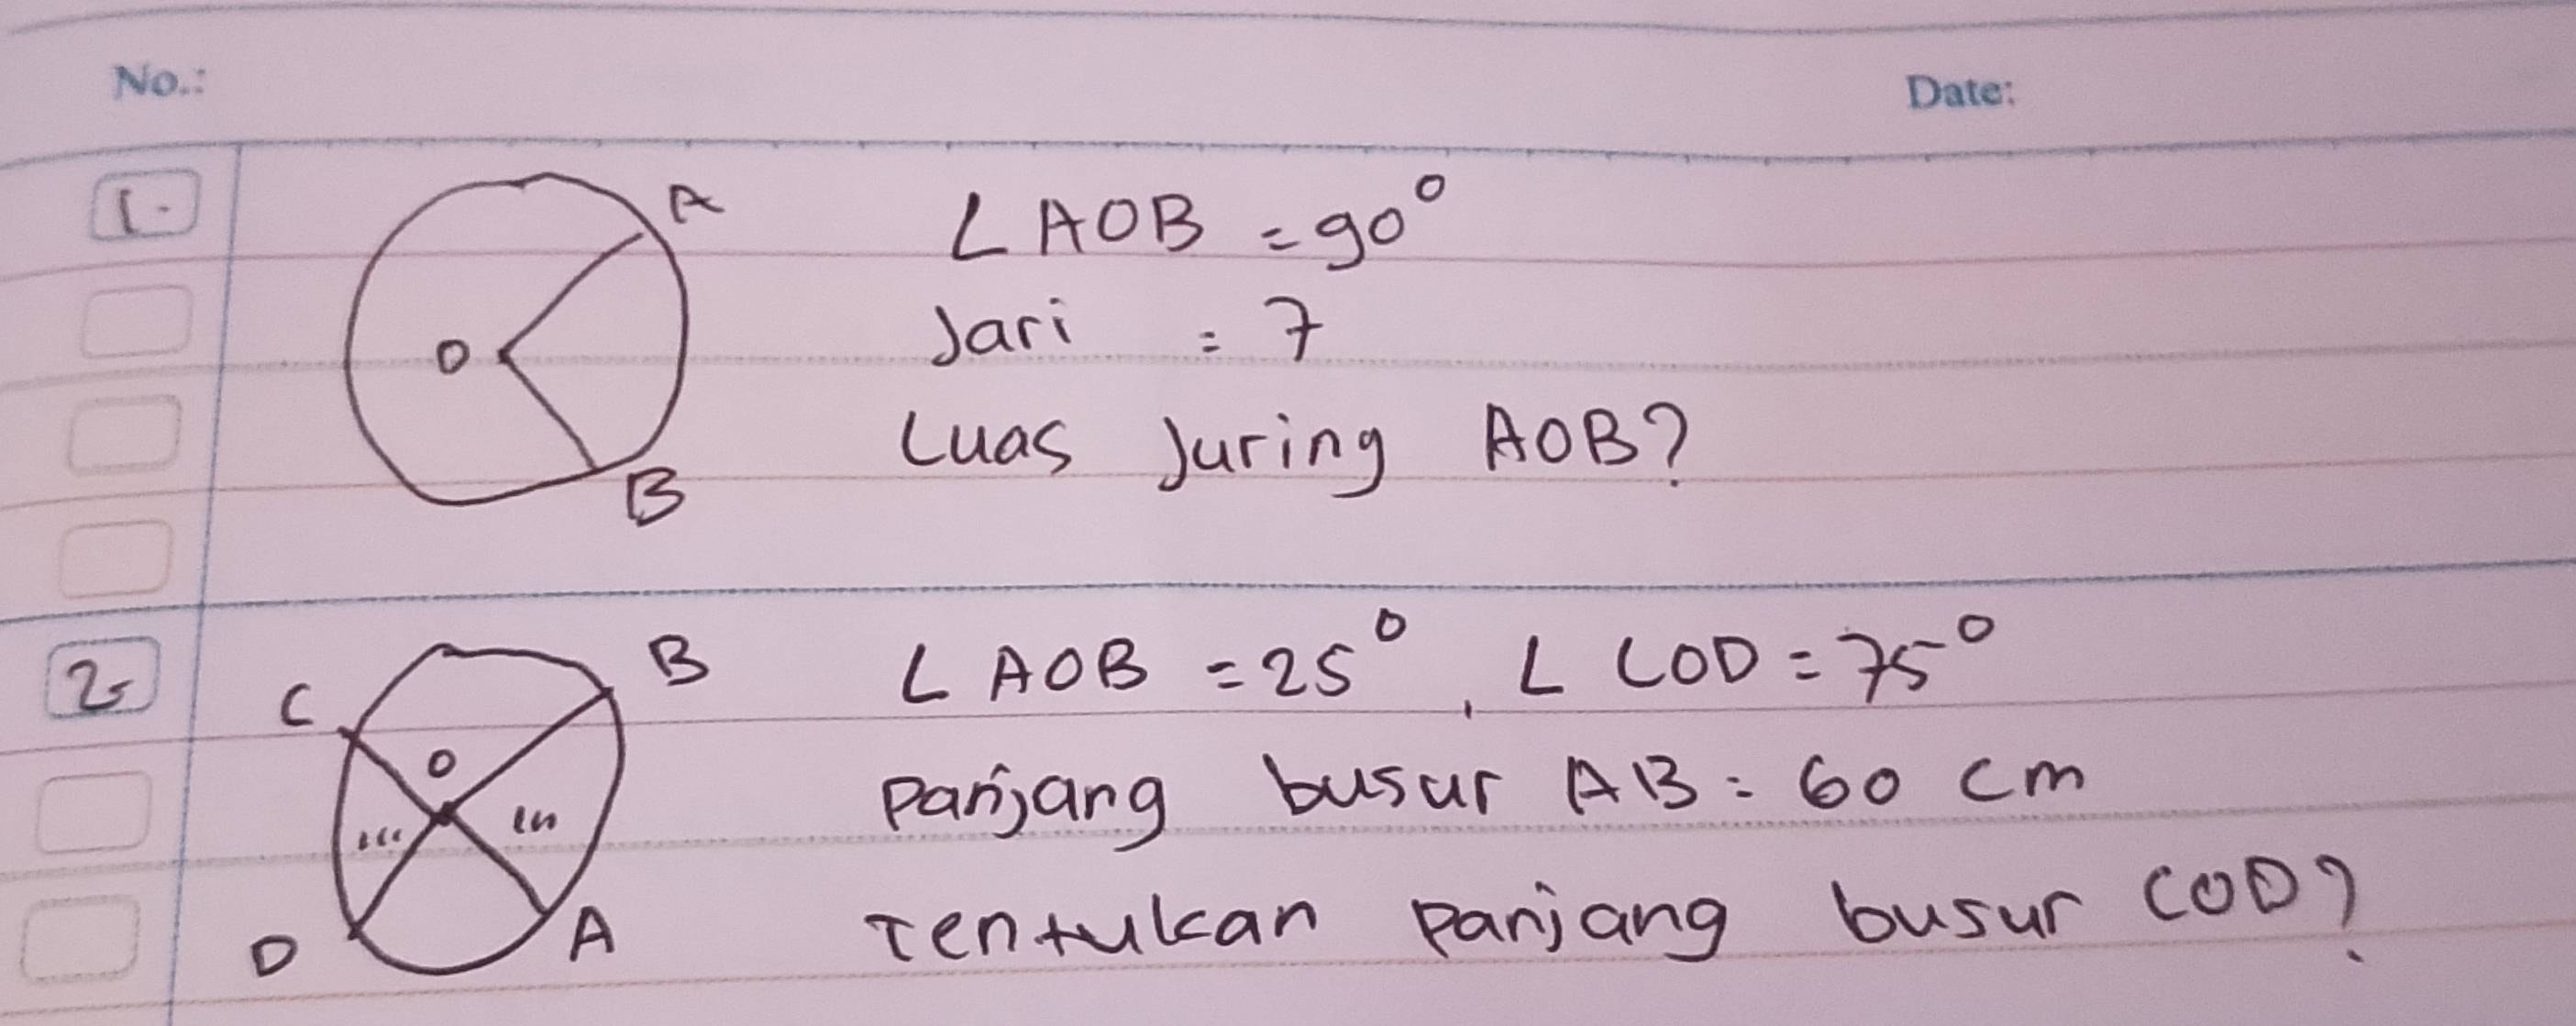 No.:
Date:
1.
A
O
B
∠ AOB = 90°
Jari : 7
Luas Juring AOB?
2.
C
B
O
D
A
∠ AOB = 25°, ∠ COD = 75°
Panjang busur AB : 60 cm
Tentukan Panjang busur COD?